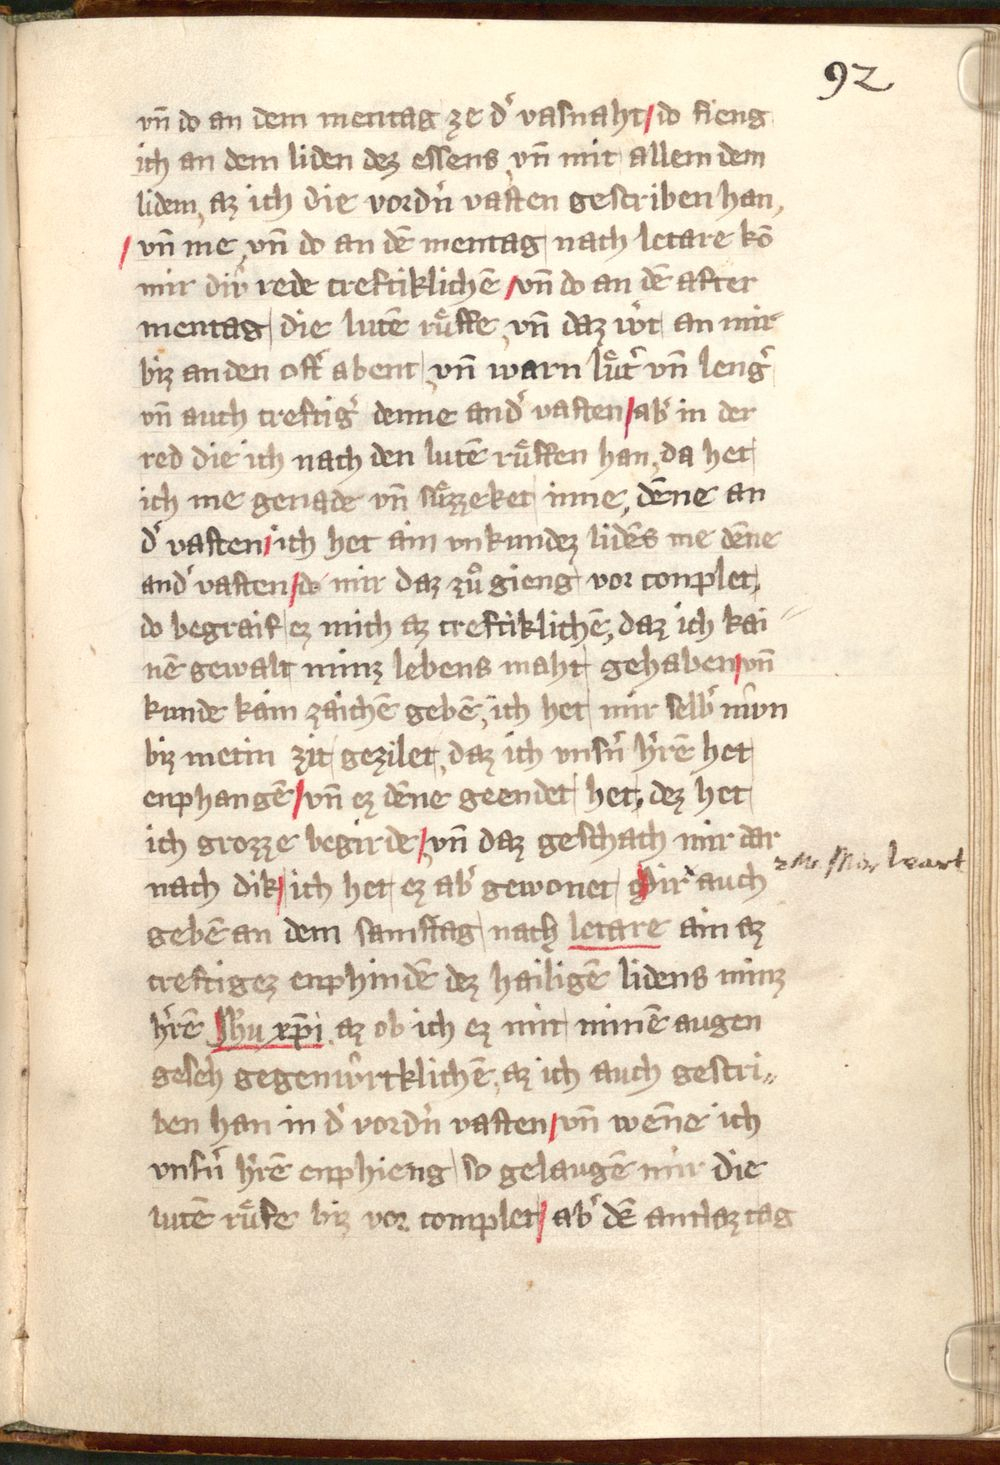 92
vn̄ do an dem mentag ze d' vasnaht / do fieng
ich an dem liden dez essens vn̄ mit allem dem
lidem, az ich die vordn̄ vasten gescriben han,
/ vn̄ me, vn̄ do an dē mentag nach letare kō
mir dir rede creftiklichē / vn̄ do an dē after
mentag die lutē růffe, vn̄ daz w't an mir
biz an den ost' abent, vn̄ warn lůt' vn̄ leng'
vn̄ auch creftig' denne and' vasten / ab' in der
red die ich nach den lutē růffen han, da het
ich me genade vn̄ sůzzeket inne, dēne an
d' vasten / ich het ain vnkundez lidēs me dēne
and' vasten / do mir daz zů gieng vor conplet,
do begraif ez mich az creftiklichē, daz ich kai
nē gewalt minz lebens maht gehaben / vn̄
kunde kain zaichē gebē, ich het mir selb' nvn
biz metin zit gezilet, daz ich vnsn' h'rē het
enphangē / vn̄ ez dēne geendet het, dez het
ich grozze begirde / vn̄ daz geschach mir dar
nach dik / ich het ez ab' gewonet Mir auch
gebē an dem samstag nach letare ain az
creftigez enphindē dez hailigē lidens minz
h'rē Jh̄u xp̄i az ob ich ez mit minē augen
geseh gegenw'rtklichē, az ich auch gescri„
ben han in d' vordn̄ vasten / vn̄ wēne ich
vnsn' h'rē enphieng so gelaugē mir die
lutē růfe biz vor complet / ab' dē antlaz tag